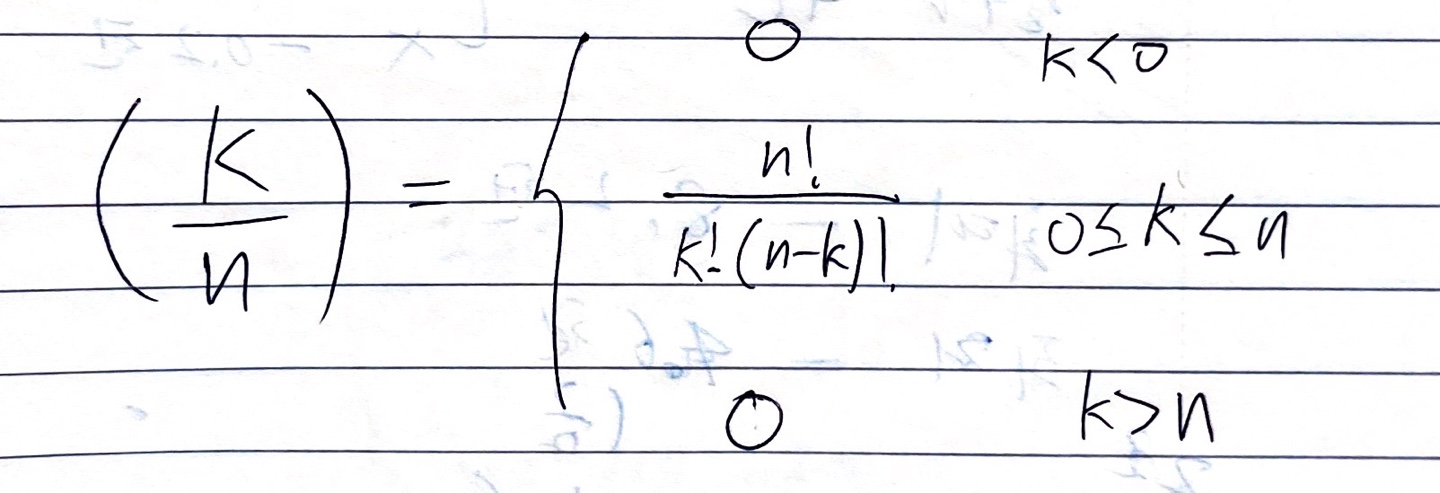 $\left(\frac{k}{n}\right) = \begin{cases} 0 & k<0 \\ \frac{n!}{k!(n-k)!} & 0 \leq k \leq n \\ 0 & k>n \end{cases}$